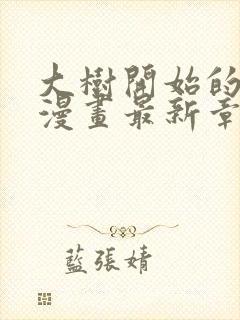 大樹開始的
漫畫最新章
藍張婧